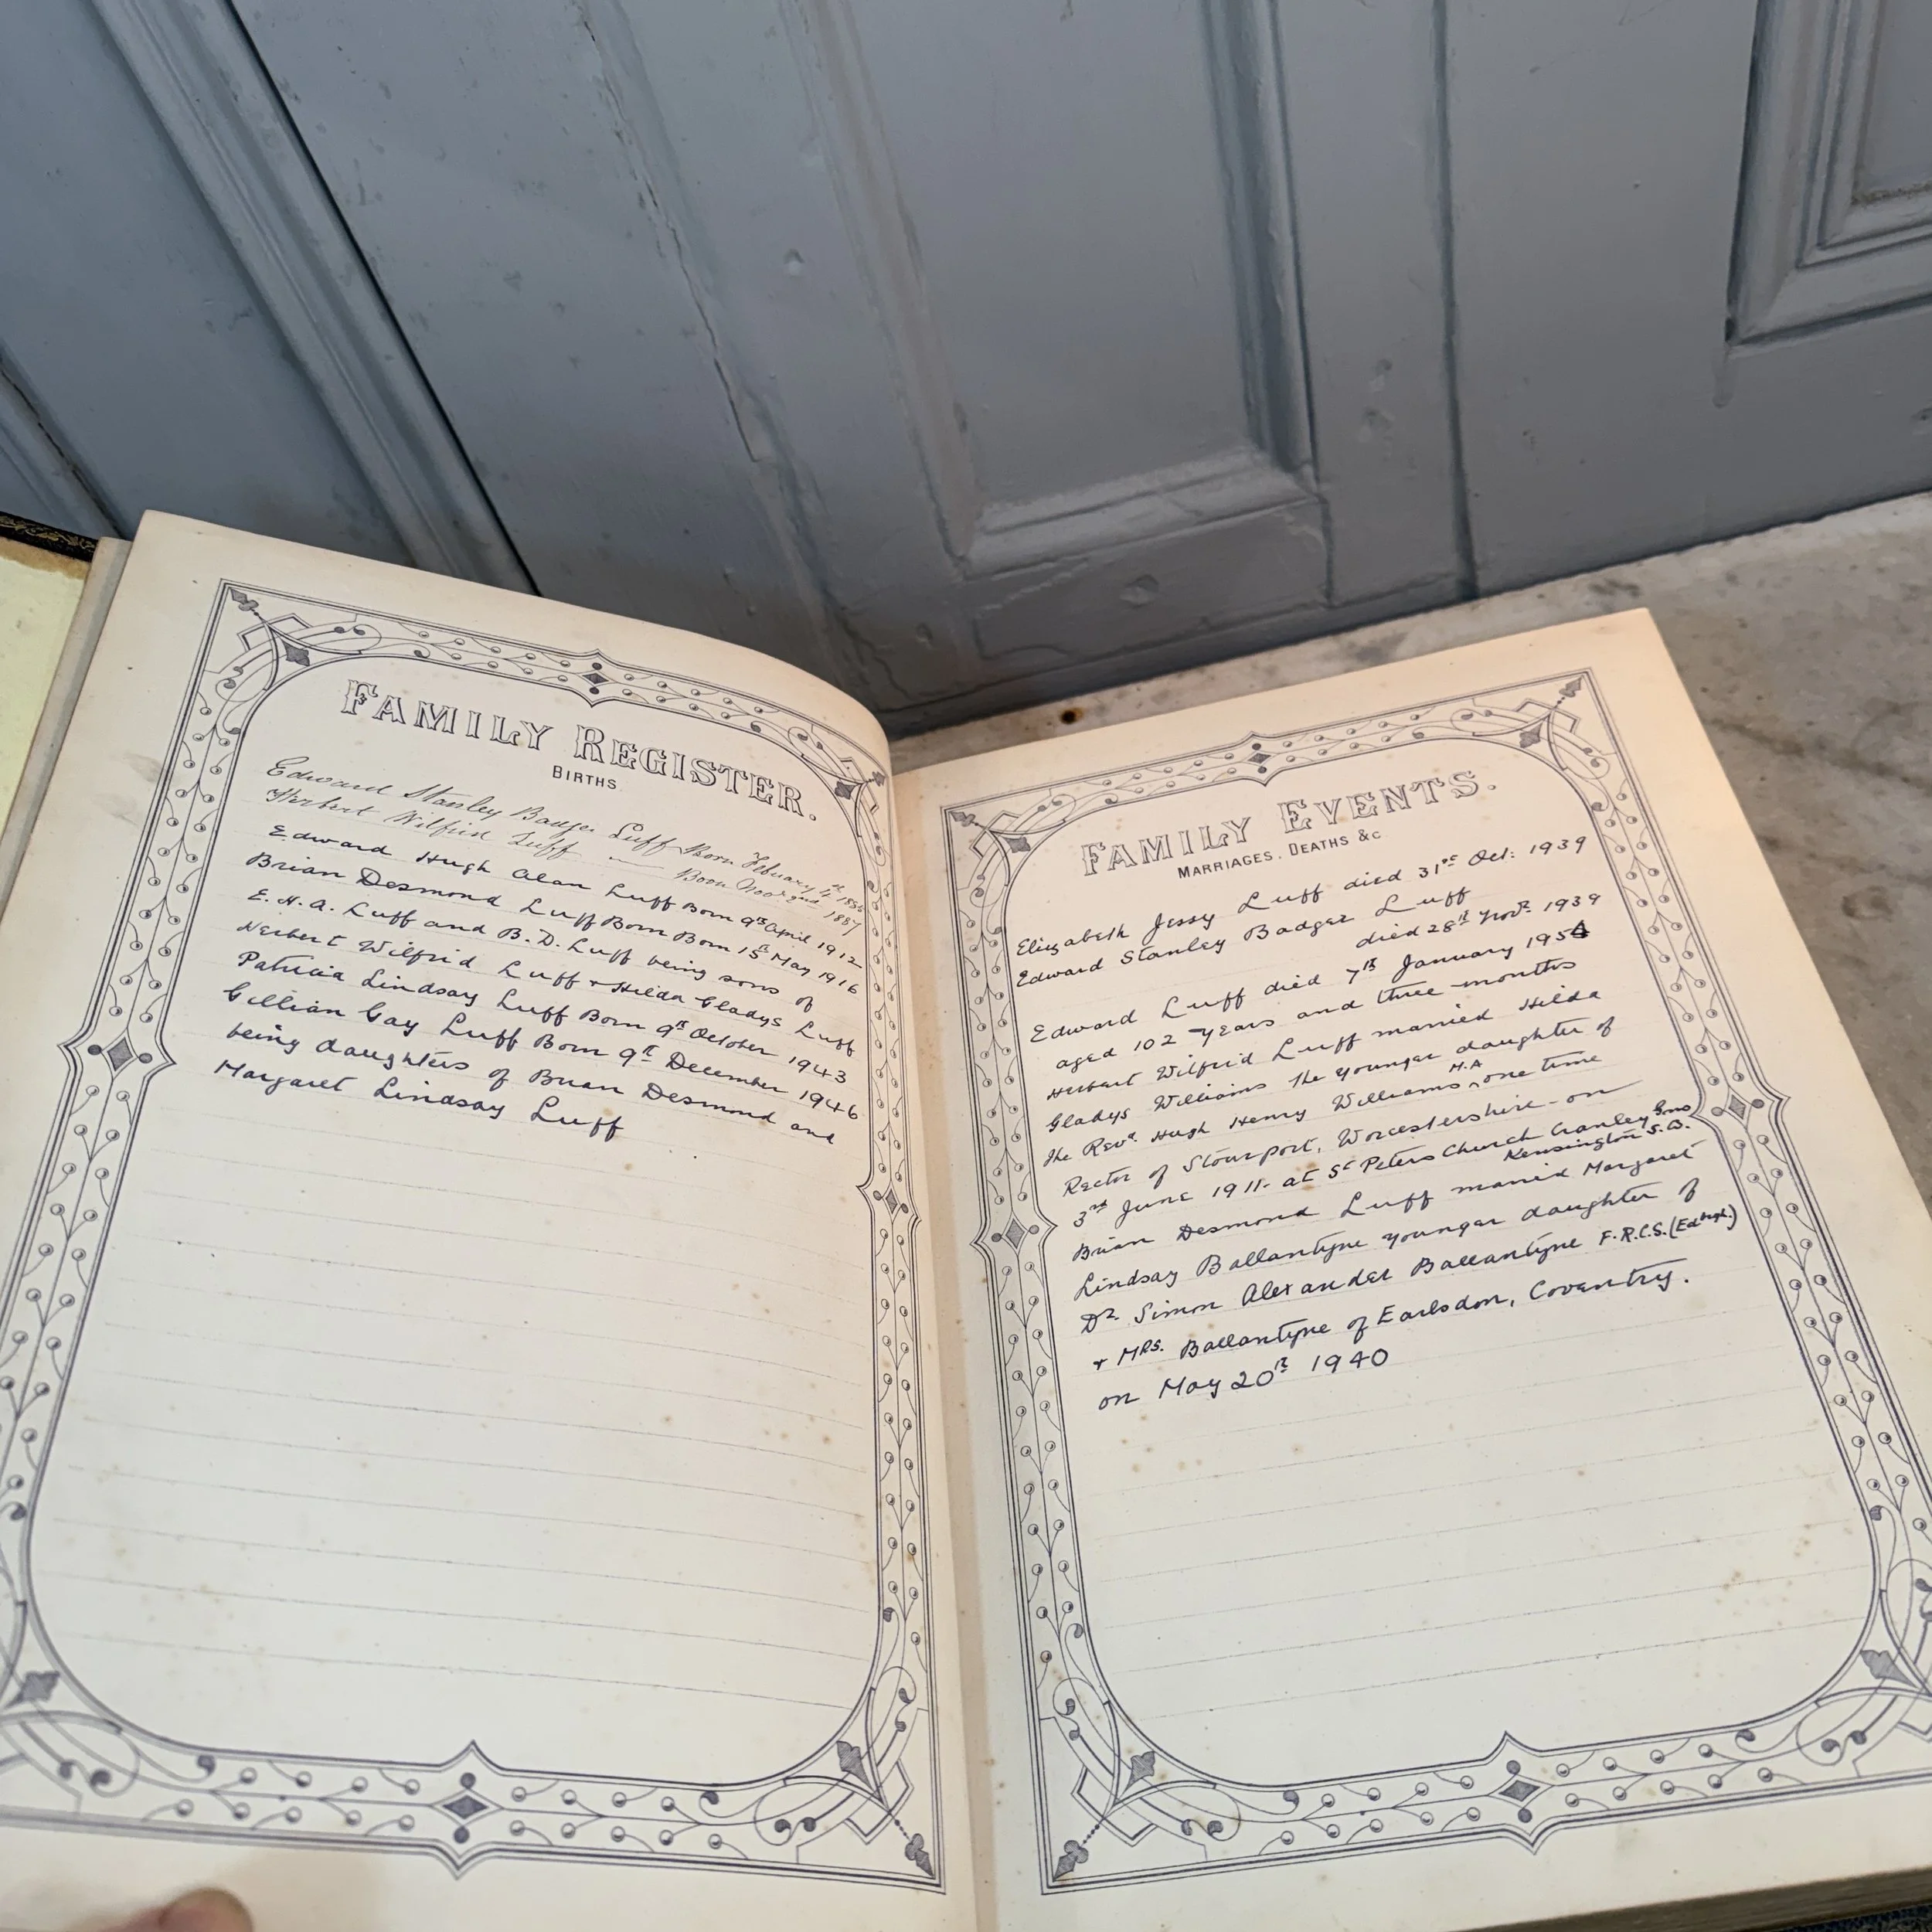 FAMILY REGISTER.
BIRTHS
Edward Stanley Badger Luff Born February 4th
Herbert Wilfrid Luff — Born Novr 2nd 1887
Edward Hugh Alan Luff Born 9th April 1912
Brian Desmond Luff Born Born 15th May 1916
E. H. A. Luff and B. D. Luff being sons of
Herbert Wilfrid Luff & Hilda Gladys Luff
Patricia Lindsay Luff Born 9th October 1943
Gillian Gay Luff Born 9th December 1946
being daughters of Brian Desmond and
Margaret Lindsay Luff
FAMILY EVENTS.
MARRIAGES, DEATHS &c
Elizabeth Jessy Luff died 31st Oct: 1939
Edward Stanley Badger Luff
died 28th Novr. 1939
Edward Luff died 7th January
aged 102 years and three months
Herbert Wilfrid Luff married Hilda
Gladys Williams the younger daughter of
the Revd. Hugh Henry Williams M.A one time
Rector of Stourport, Worcestershire - on
3rd June 1911 - at St Peters Church Cranley Gns
Kensington S.W.
Brian Desmond Luff married Margaret
Lindsay Ballantyne younger daughter of
Dr. Simon Alexander Ballantyne F.R.C.S. (Edbrgh.)
& MRS. Ballantyne of Earlsdon, Coventry.
on May 20th 1940